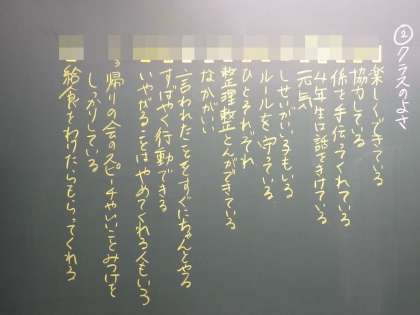 ② クラスのよさ
楽しくできている
協力している
係を手伝ってくれている
4年生は話をきけている
元気
しせいがいい子もいる
ルールを守っている
ひとそれぞれ
整理整とんができている
なかがいい
言われたことをすぐにちゃんとやる
すばやく行動できる
いやがることはやめてくれる人もいる
帰りの会のスピーチやいいことみつけを
しっかりしている
給食をわけたらもらってくれる